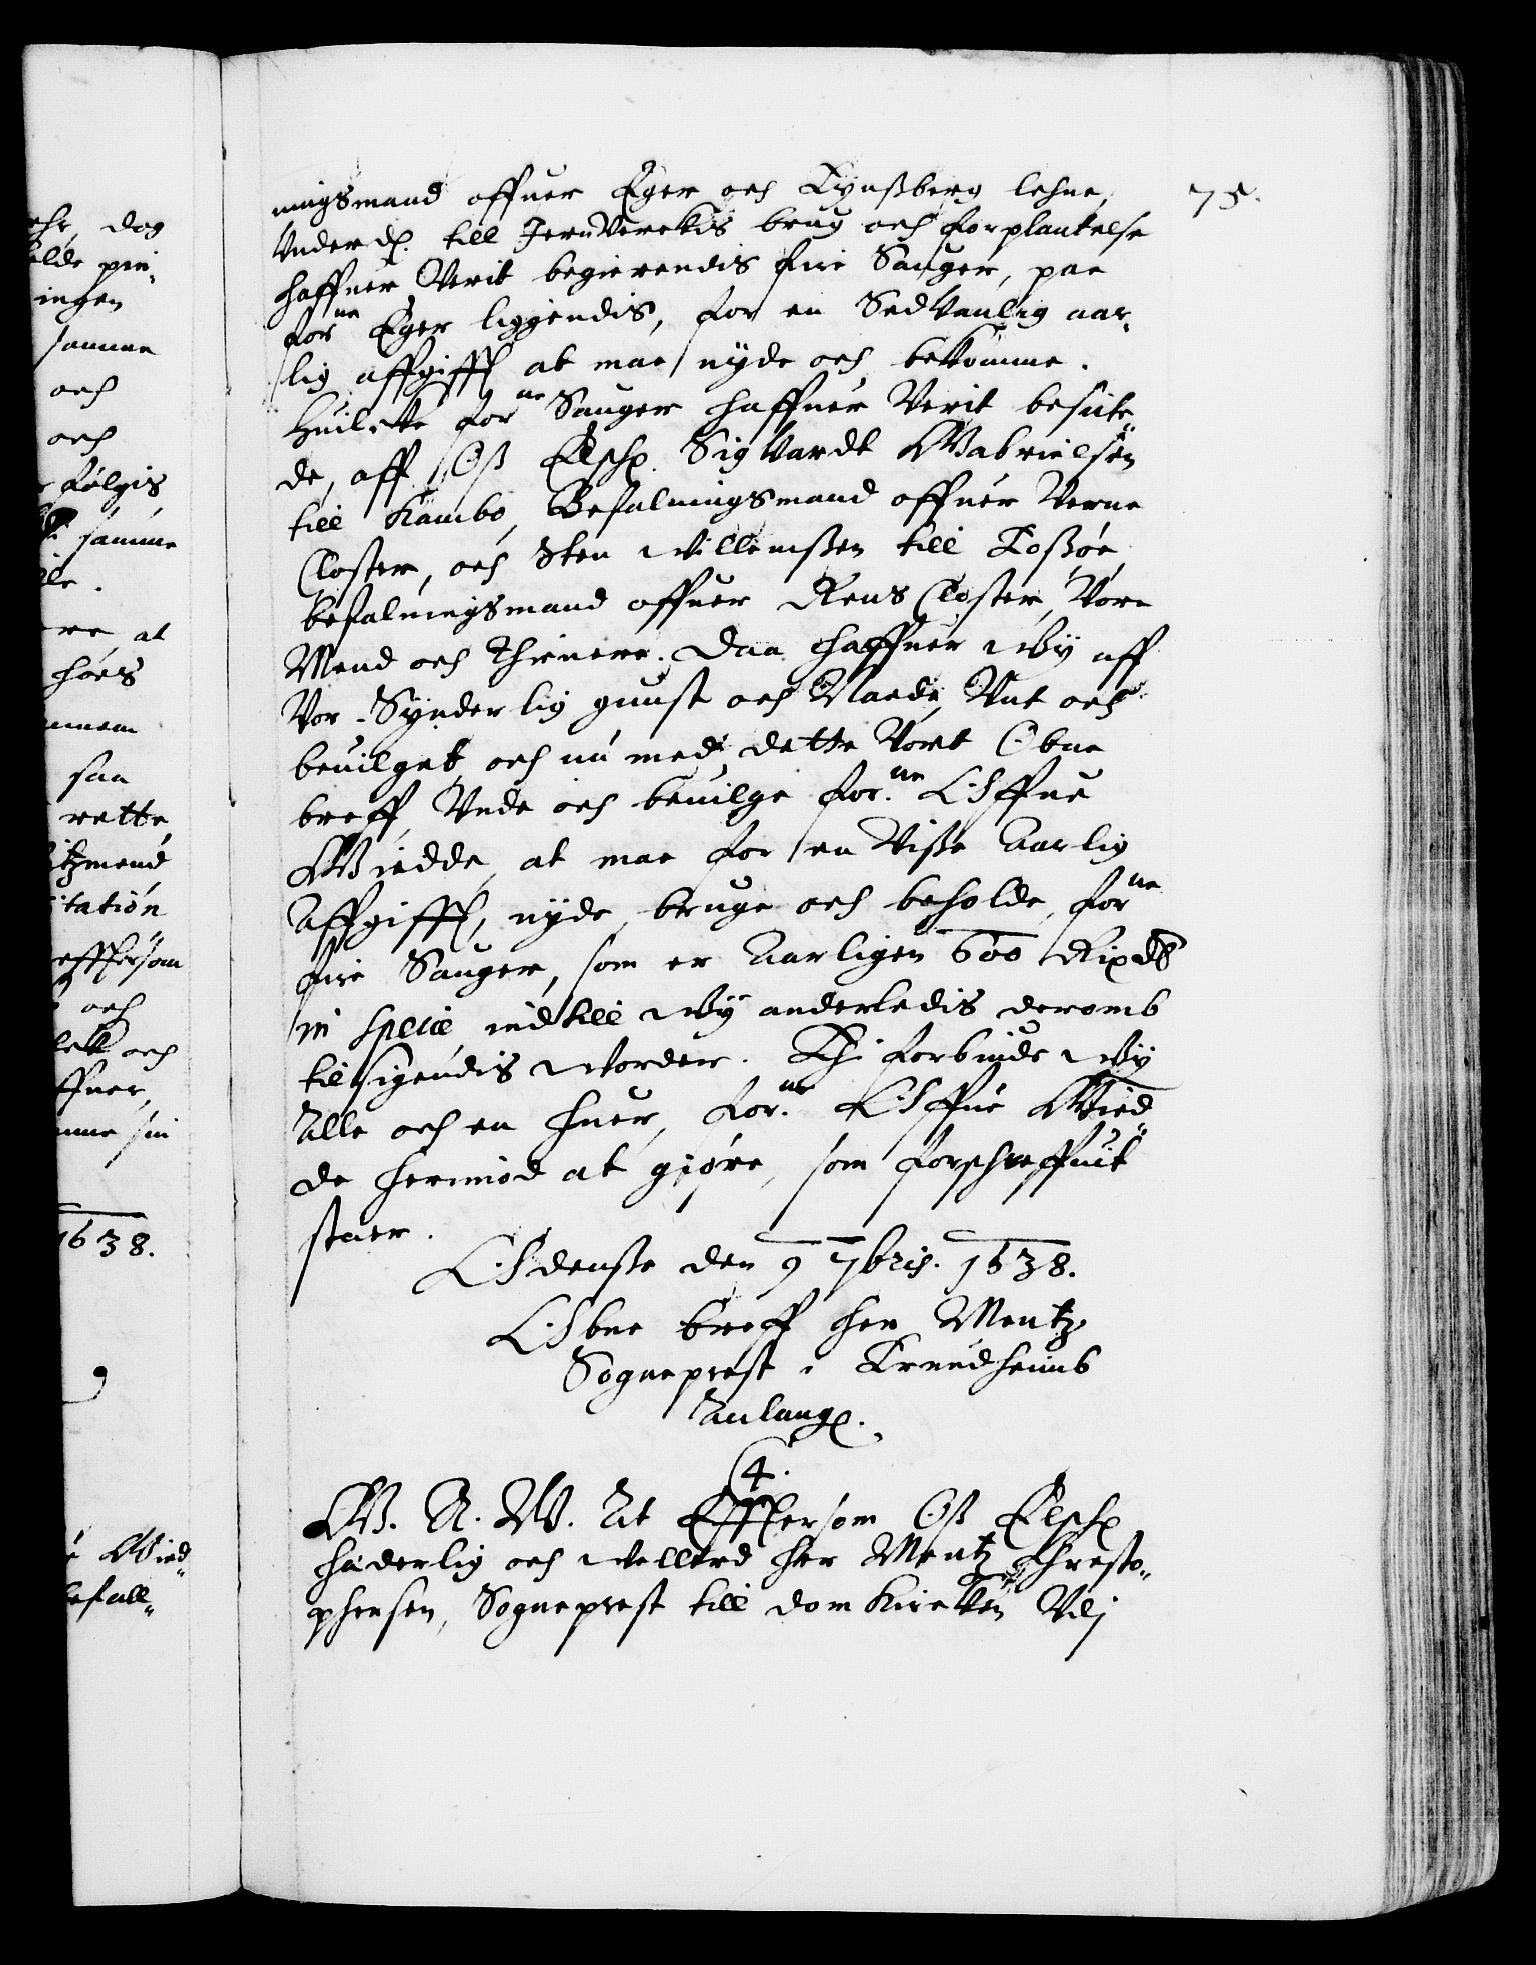 75.
ningsmand offuer Eger och Tynßberg lehne,
Vnderd. till JernVerckis brug och forplantelse
haffuer Verit begierendis fire Sauger, paa
forne Eger liggendis, for en SedVanlig aar-
lig affgifft at maa nyde och bekomme.
Huilcke forne Sauger haffuer Verit besicte-
de, aff Oß Elsch. SigVardt Gabrielsøn
till Kambo, Befalningsmand offuer Verne
Closter, och Sten Willemßen till Toßøe,
befalningsmand offuer Reens Closter, Vore
Mend och Thienere. Daa haffuer Wy aff
Vor Synderlig gunst och Naade, Vnt och
beuilget, och nu med dette Vort Obne
breff, Vnde och beuilge for.ne Offue
Giedde, at maa for en Viße Aarlig
Affgifft, nyde, bruge och beholde, forne
fire Sauger, som er Aarligen 600 Rixdr
in specie, indtill Wy anderledis deromb
tilsigendis Worder. Thi forbiude Wy
Alle och en huer, for.ne Offue Gied-
de hermod at giøre, som forschreffuit
staer.
Odensse den 9 7bris. 1638.
Obne breff her Mentz
Sogneprest i Trundheimb
Anlang.
4.
G. A. W. At Effttersom Oß Elsch
hæderlig och wellerd her Mentz Christo-
phersen, Sogneprest till domKircken Vdj